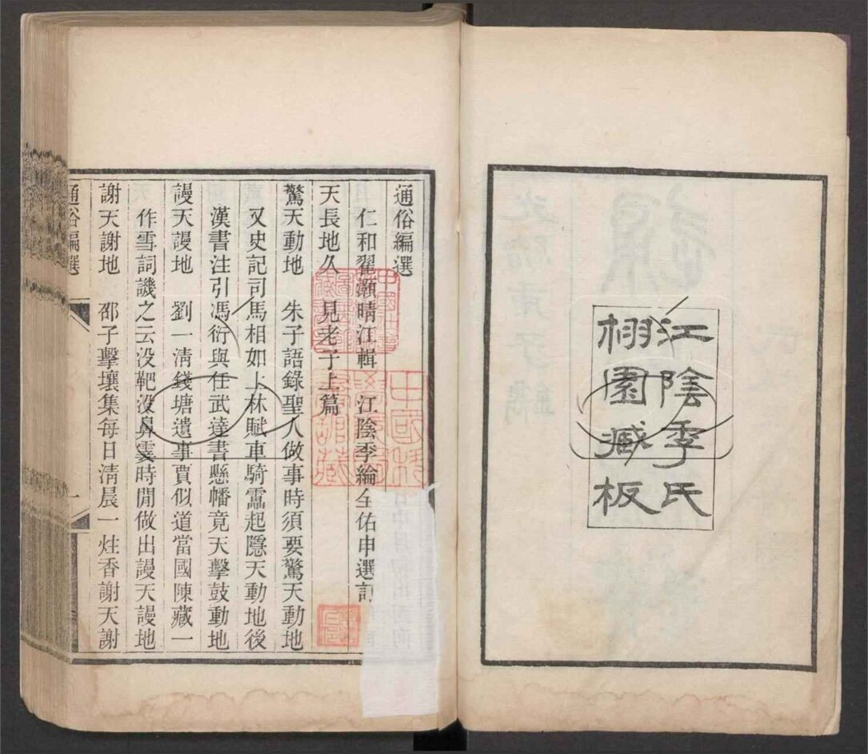 江陰季氏
栩園藏板
通俗編選
仁和翟灝晴江輯 江陰季綸全佑申選訂
天長地久 見老子上篇
驚天動地 朱子語錄聖人做事時須要驚天動地
又史記司馬相如上林賦車騎靁起隱天動地後
漢書注引馮衍與任武達書懸幡竟天擊鼓動地
謾天謾地 劉一清錢塘遺事賈似道當國陳藏一
作雪詞譏之云沒靶沒鼻霎時閒做出謾天謾地
謝天謝地 邵子擊壤集每日清晨一炷香謝天謝
通俗編選
一